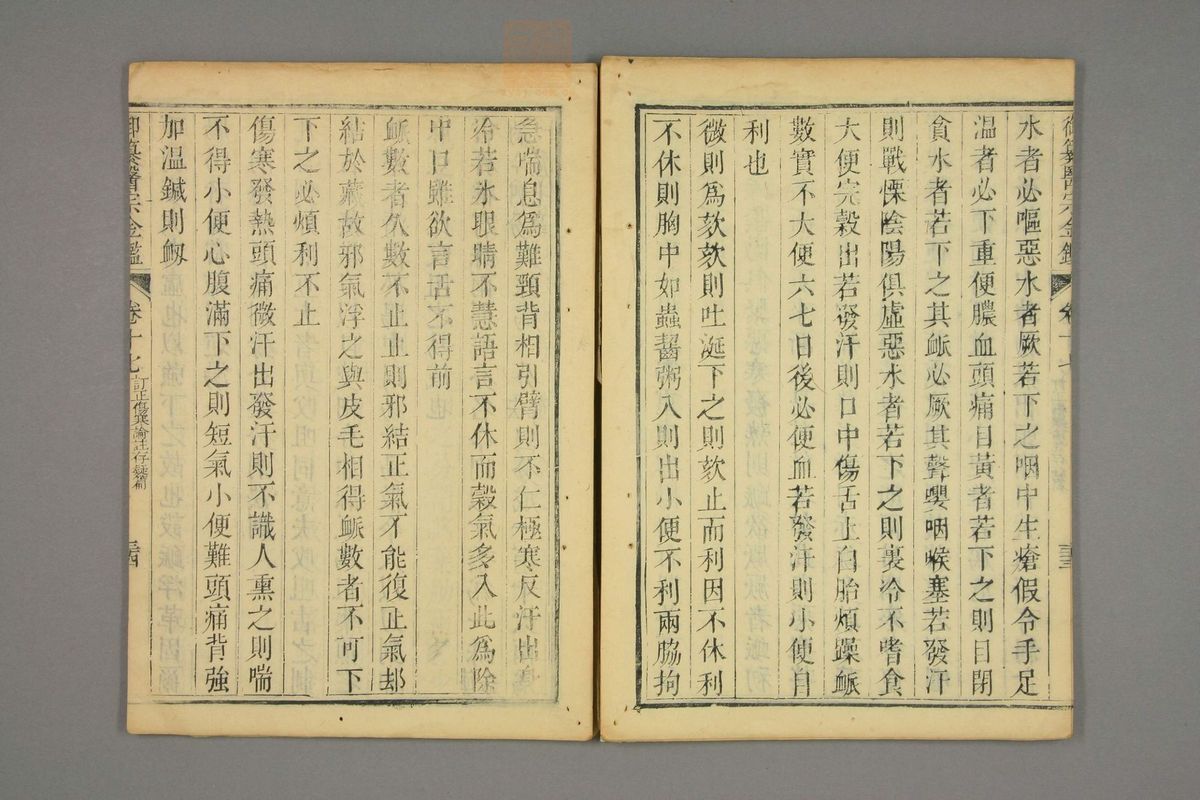 御纂醫宗金鑑 卷十七 三三
水者必嘔惡水者厥若下之咽中生瘡假令手足
溫者必下重便膿血頭痛目黃者若下之則目閉
貪水者若下之其脈必厥其聲嚶咽喉塞若發汗
則戰慄陰陽俱虛惡水者若下之則裏冷不嗜食
大便完穀出若發汗則口中傷舌上白胎煩躁脈
數實不大便六七日後必便血若發汗則小便自
利也
微則為欬欬則吐涎下之則欬止而利因不休利
不休則胸中如蟲齧粥入則出小便不利兩脇拘
急喘息為難頸背相引臂則不仁極寒反汗出身
冷若氷眼睛不慧語言不休而穀氣多入此為除
中口雖欲言舌不得前
脈數者久數不止止則邪結正氣不能復正氣却
結於藏故邪氣浮之與皮毛相得脈數者不可下
下之必煩利不止
傷寒發熱頭痛微汗出發汗則不識人熏之則喘
不得小便心腹滿下之則短氣小便難頭痛背強
加溫鍼則衂
御纂醫宗金鑑 卷十七 訂正傷寒論註存疑篇 三四